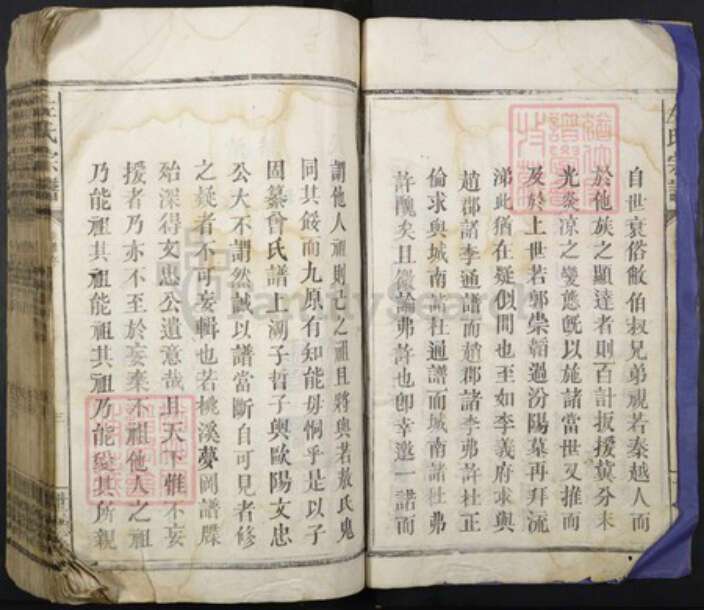 自世衰俗敝伯叔兄弟視若秦越人而
於他族之顯達者則百計扳援冀分末
光炎涼之變態旣以施諸當世又推而
及於上世若郭崇韜過汾陽墓再拜流
涕此猶在疑似間也至如李義府求與
趙郡諸李通譜而趙郡諸李弗許杜正
倫求與城南諸杜通譜而城南諸杜弗
許醜矣且無論弗許也卽幸邀一諾而
謂他人祖則己之祖且將與若敖氏鬼
同其餒而九原有知能毋恫乎是以子
固纂曾氏譜上溯子哲子與歐陽文忠
公大不謂然誠以譜當斷自可見者修
之疑者不可妄輯也若桃溪夢岡譜牒
殆深得文忠公遺意哉且天下惟不妄
援者乃亦不至於妄棄不祖他人之祖
乃能祖其祖能祖其祖乃能 其所親
氏宗譜
FamilySearch